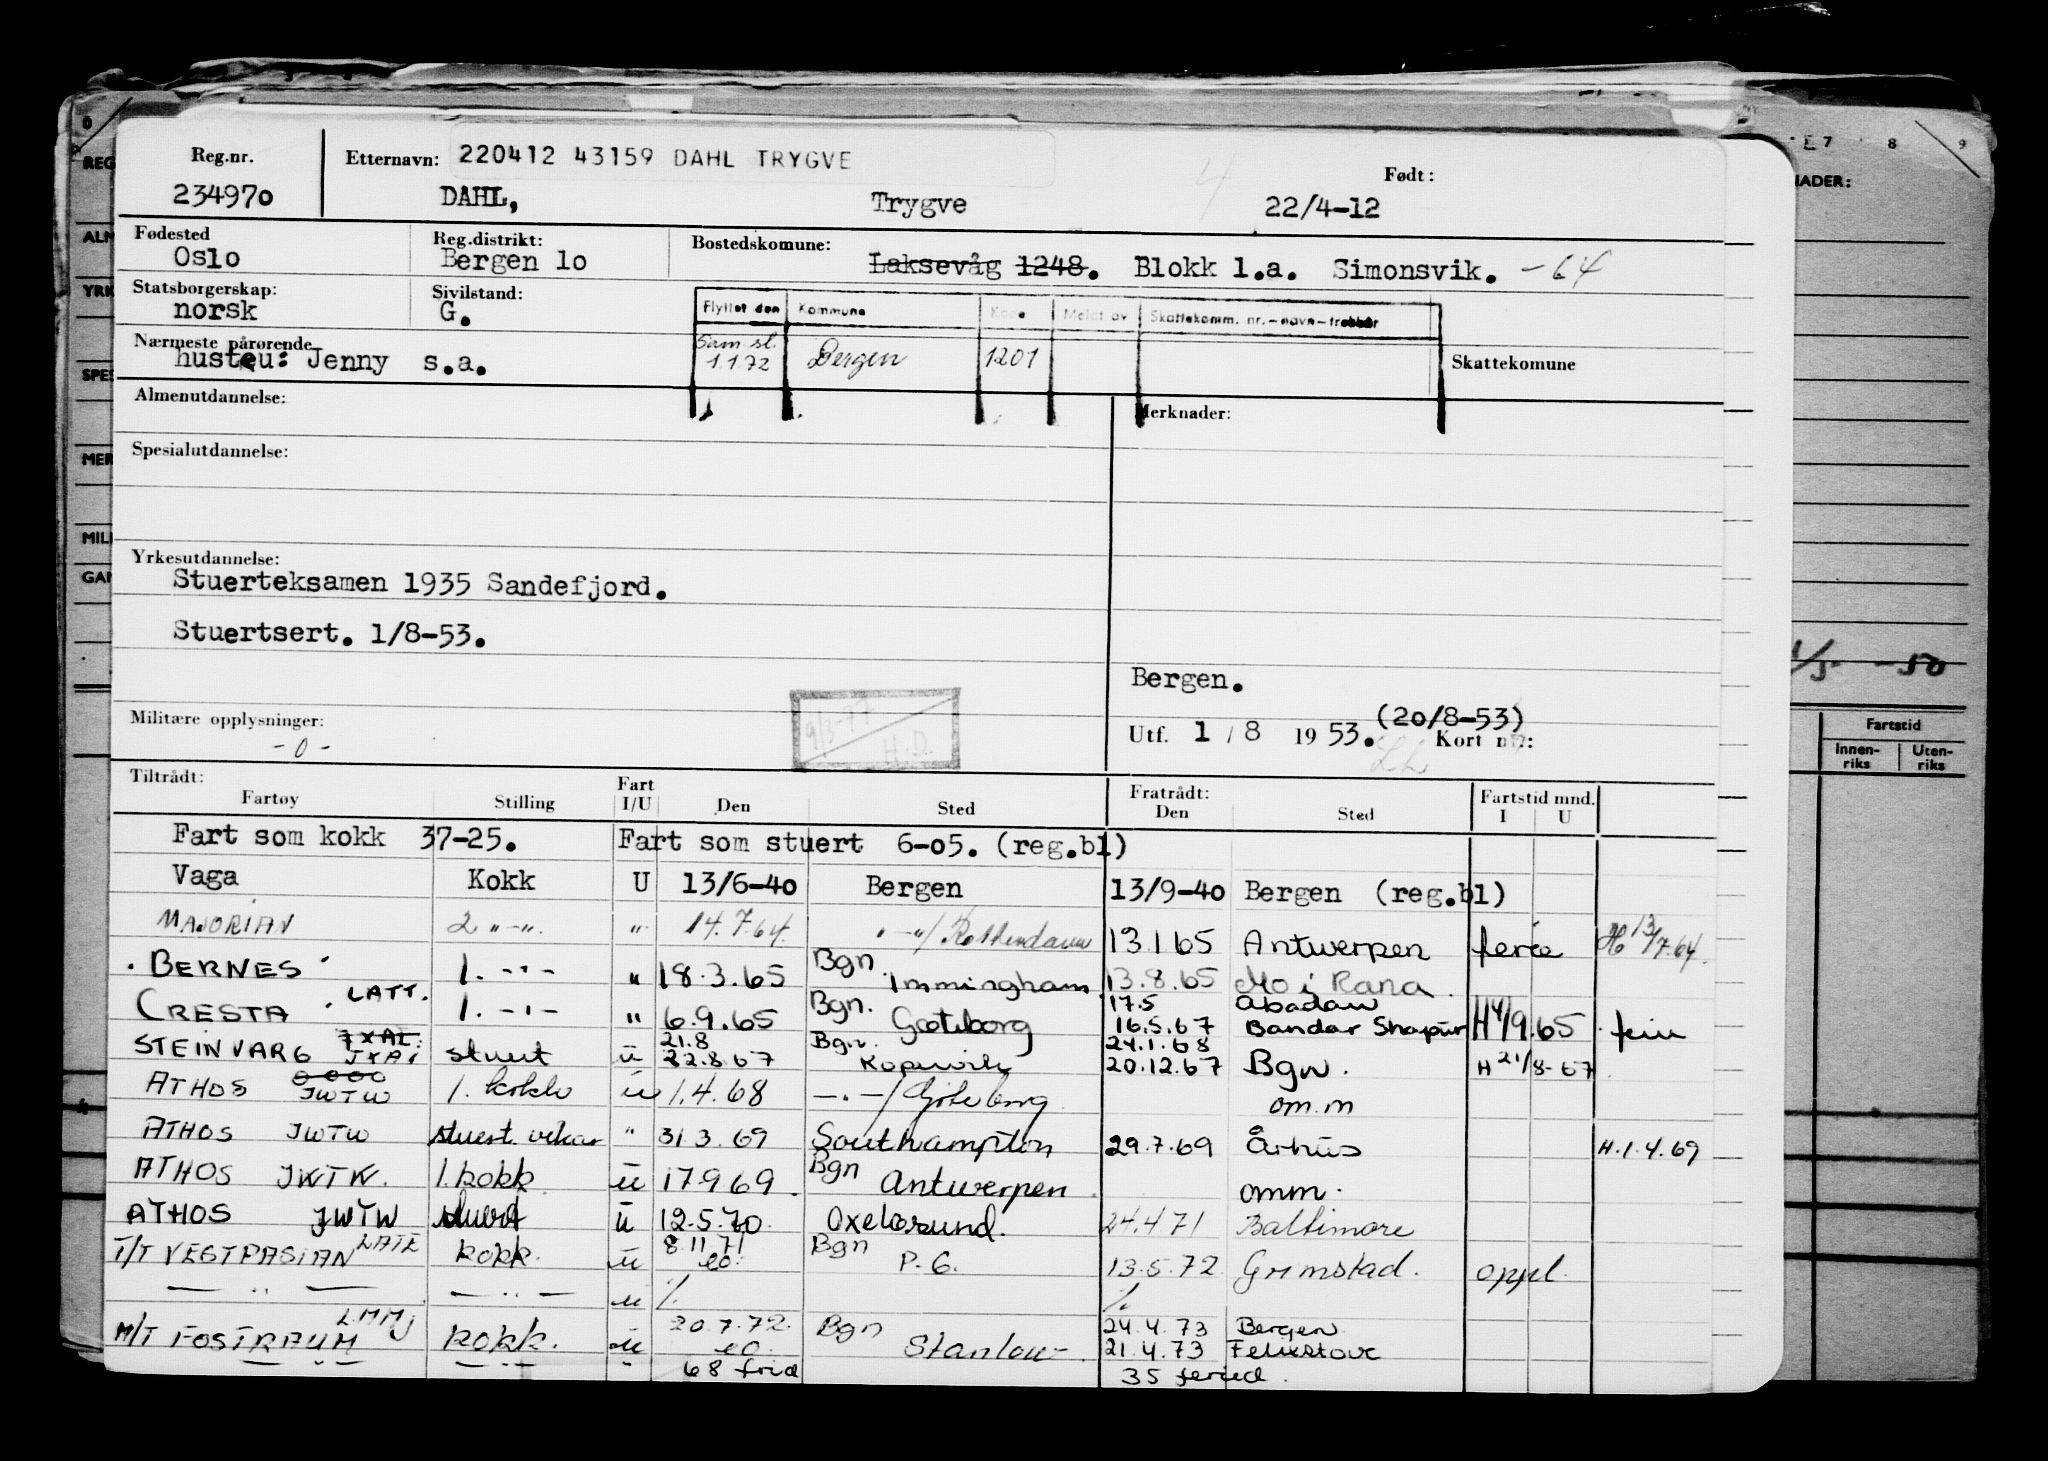 Reg.nr. Etternavn: 220412 43159 DAHL TRYGVE Født:
234970 DAHL, Trygve 22/4-12
Fødested Reg.distrikt: Bostedskomune:
Oslo Bergen 10 Laksevåg 1248. Blokk 1.a. Simonsvik. -64
Statsborgerskap: Sivilstand: Flyttet den Kommune Kode Meldt av Skattekomm. nr.-navn-
norsk G.
Nærmeste pårørende Sam sl.
hustru: Jenny s.a. 1.1.72 Bergen 1201 Skattekomune
Almenutdannelse: Merknader:
Spesialutdannelse:
Yrkesutdannelse:
Stuerteksamen 1935 Sandefjord.
Stuertsert. 1/8-53.
Bergen.
Militære opplysninger: 9/3-77 (20/8-53)
-0- H.D. Utf. 1 / 8 1953. Kort nr:
Tiltrådt: Fart Fratrådt: Fartstid mnd.
Fartøy Stilling I/U Den Sted Den Sted I U
Fart som kokk 37-25. Fart som stuert 6-05. (reg.bl)
Vaga Kokk U 13/6-40 Bergen 13/9-40 Bergen (reg.bl)
MAJORIAN 2 "-". " 14.7.64. "-"/Rotterdam 13.1.65 Antwerpen ferie H 13/7.64.
BERNES 1. -"- " 18.3.65 Bgn. Immingham 13.8.65 Mo i Rana.
CRESTA LATT. 1. -"- " 6.9.65 Bgn. Gøteborg 17.5 Abadan
16.5.67 Bandar Shapur H 4/9.65
STEINVARG JXAI stuert u 21.8 22.8.67 Bgn. Kopervik 24.1.68 20.12.67 Bgn. H 21/8-67
ATHOS JWTW 1. kokk u 1.4.68 -"-/Göteborg om.m
ATHOS JWTW stuert. vikar " 31.3.69 Southampton 29.7.69 Århus H.1.4.69
ATHOS JWTW. 1. kokk u 17.9.69. Bgn Antwerpen. omm.
ATHOS JWTW stuert u 12.5.70. Oxelosund. 24.4.71 Baltimore
T/T VESTPASIAN LATE kokk. u 8.11.71 eo. Bgn P.G. 13.5.72 Grimstad. oppl.
— " — — " — u % %
M/T FOSTRAUM LMMJ kokk. u 20.7.72. eo. Bgn Stanlow 24.4.73 Bergen
21.4.73 Felixstove
— " — — " — " 68 frid 35 feried.
REG
ALM
YRK
SPES
MER
MILI
GAN
7 8 9
NADER:
1/5- -50
Fartstid
Innen-riks Uten-riks